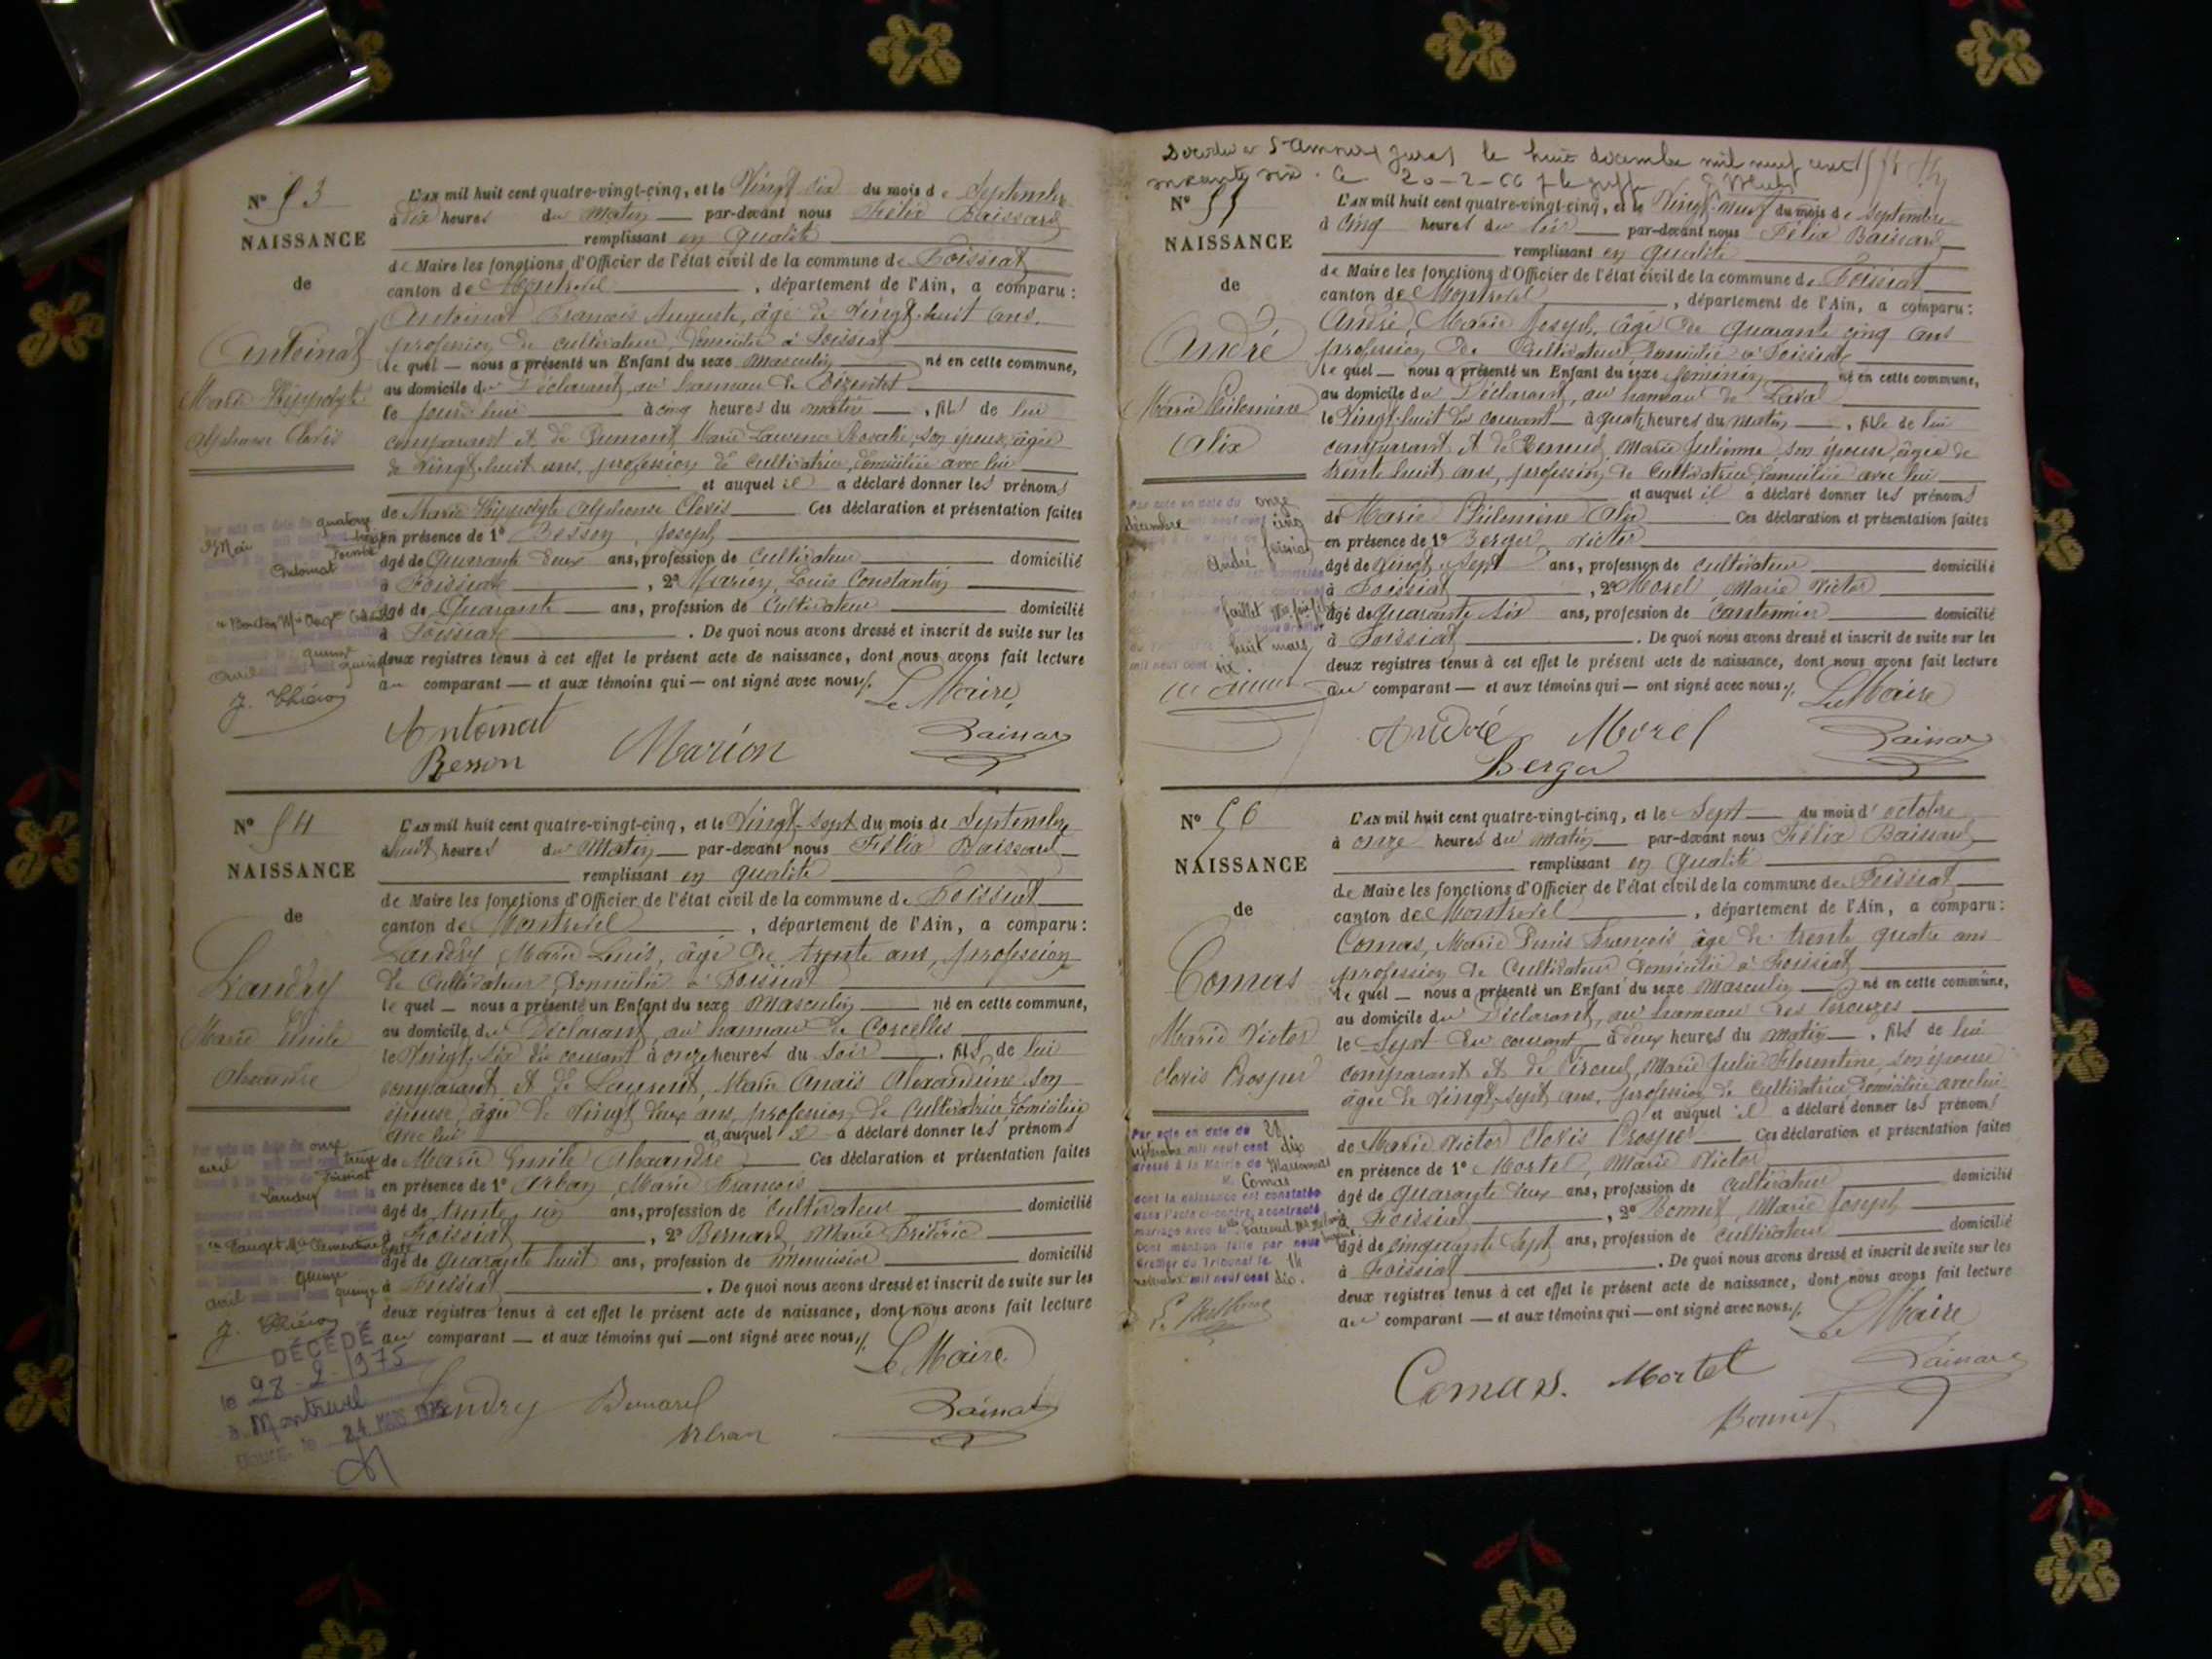 N° 53
NAISSANCE
de
Antoinat
Marie Hippolyte
Alphonse Clovis
L'AN mil huit cent quatre-vingt-cinq, et le Vingt six du mois de Septembre
à six heures du Matin par-devant nous Félix
remplissant en qualité
de Maire les fonctions d'Officier de l'état civil de la commune de Foissiat
canton de Montrevel, département de l'Ain, a comparu :
Antoinat François Auguste, âgé de Vingt-huit ans,
profession de cultivateur, domicilié à Foissiat
lequel nous a présenté un Enfant du sexe masculin né en cette commune,
au domicile du Déclarant, au hameau de
le jourd'hui à cinq heures du matin, fils de lui
comparant et de Dumont, Marie Laurence son épouse, âgée
de Vingt-huit ans, profession de cultivatrice, domiciliée avec lui
et auquel il a déclaré donner les prénoms
de Marie Hippolyte Alphonse Clovis Ces déclaration et présentation faites
en présence de 1° Besson, Joseph
âgé de Quarante deux ans, profession de Cultivateur domicilié
à Foissiat, 2° Marion, Louis Constantin
âgé de Quarante ans, profession de Cultivateur domicilié
à Foissiat. De quoi nous avons dressé et inscrit de suite sur les
deux registres tenus à cet effet le présent acte de naissance, dont nous avons fait lecture
au comparant et aux témoins qui ont signé avec nous.
Le Maire
Antoinat
Besson Marion
N° 54
NAISSANCE
de
Landry
Marie Emile
Alexandre
L'AN mil huit cent quatre-vingt-cinq, et le Vingt-sept du mois de Septembre
à huit heures du Matin par-devant nous Félix
remplissant en qualité
de Maire les fonctions d'Officier de l'état civil de la commune de Foissiat
canton de Montrevel, département de l'Ain, a comparu :
Landry Marie Louis, âgé de trente ans, profession
de Cultivateur domicilié à Foissiat
lequel nous a présenté un Enfant du sexe Masculin né en cette commune,
au domicile du Déclarant, au hameau de Corcelles
le Vingt-six du courant à onze heures du soir, fils de lui
comparant et de Laurent, Marie Anaïs Alexandrine son
épouse, âgée de Vingt deux ans, profession de Cultivatrice domiciliée
avec lui et auquel il a déclaré donner les prénoms
de Marie Emile Alexandre Ces déclaration et présentation faites
en présence de 1° Urban, Marie François
âgé de trente un ans, profession de Cultivateur domicilié
à Foissiat, 2° Bernard, Marie Frédéric
âgé de quarante huit ans, profession de Menuisier domicilié
à Foissiat. De quoi nous avons dressé et inscrit de suite sur les
deux registres tenus à cet effet le présent acte de naissance, dont nous avons fait lecture
au comparant et aux témoins qui ont signé avec nous.
Le Maire
DÉCÉDÉ
le 28-2-1975
à Montrevel
24 MARS 1975
Landry Bernard
Urban
le huit décembre mil neuf cent
20-2-66
N° 55
NAISSANCE
de
André
Marie Philomène
Alix
L'AN mil huit cent quatre-vingt-cinq, et le Vingt-neuf du mois de Septembre
à cinq heures du soir par-devant nous Félix
remplissant en qualité
de Maire les fonctions d'Officier de l'état civil de la commune de Foissiat
canton de Montrevel, département de l'Ain, a comparu :
André, Marie Joseph, âgé de quarante cinq ans
profession de Cultivateur, domicilié à Foissiat
lequel nous a présenté un Enfant du sexe féminin né en cette commune,
au domicile du Déclarant, au hameau de Laval
le Vingt-huit du courant à quatre heures du matin, fille de lui
comparant et de Marie Julienne, son épouse, âgée de
trente huit ans, profession de Cultivatrice domiciliée avec lui
et auquel il a déclaré donner les prénoms
de Marie Philomène Alix Ces déclaration et présentation faites
en présence de 1° Berger, Victor
âgé de Vingt-sept ans, profession de cultivateur domicilié
à Foissiat, 2° Morel Marie Victor
âgé de quarante six ans, profession de Cantonnier domicilié
à Foissiat. De quoi nous avons dressé et inscrit de suite sur les
deux registres tenus à cet effet le présent acte de naissance, dont nous avons fait lecture
au comparant et aux témoins qui ont signé avec nous.
Le Maire
André Morel
Berger
N° 56
NAISSANCE
de
Comas
Marie Victor
Clovis Prosper
Par acte en date du 28
septembre mil neuf cent dix
dressé à la Mairie de Marsonnas
Comas
dont la naissance est constatée
dans l'acte ci-contre, a contracté
mariage avec
Dont mention faite par nous
Greffier du Tribunal le 14
novembre mil neuf cent dix.
L'AN mil huit cent quatre-vingt-cinq, et le Sept du mois d'octobre
à onze heures du matin par-devant nous Félix
remplissant en qualité
de Maire les fonctions d'Officier de l'état civil de la commune de Foissiat
canton de Montrevel, département de l'Ain, a comparu :
Comas, Marie Denis François âgé de trente quatre ans
profession de Cultivateur domicilié à Foissiat
lequel nous a présenté un Enfant du sexe Masculin né en cette commune,
au domicile du Déclarant, au hameau des
le Sept du courant à deux heures du matin, fils de lui
comparant et de Marie Julie Florentine, son épouse
âgée de Vingt-sept ans, profession de Cultivatrice domiciliée avec lui
et auquel il a déclaré donner les prénoms
de Marie Victor Clovis Prosper Ces déclaration et présentation faites
en présence de 1° Mortel, Marie Victor
âgé de quarante deux ans, profession de cultivateur domicilié
à Foissiat, 2° Bonnet, Marie Joseph
âgé de cinquante sept ans, profession de cultivateur domicilié
à Foissiat. De quoi nous avons dressé et inscrit de suite sur les
deux registres tenus à cet effet le présent acte de naissance, dont nous avons fait lecture
au comparant et aux témoins qui ont signé avec nous.
Le Maire
Comas. Mortel
Bonnet